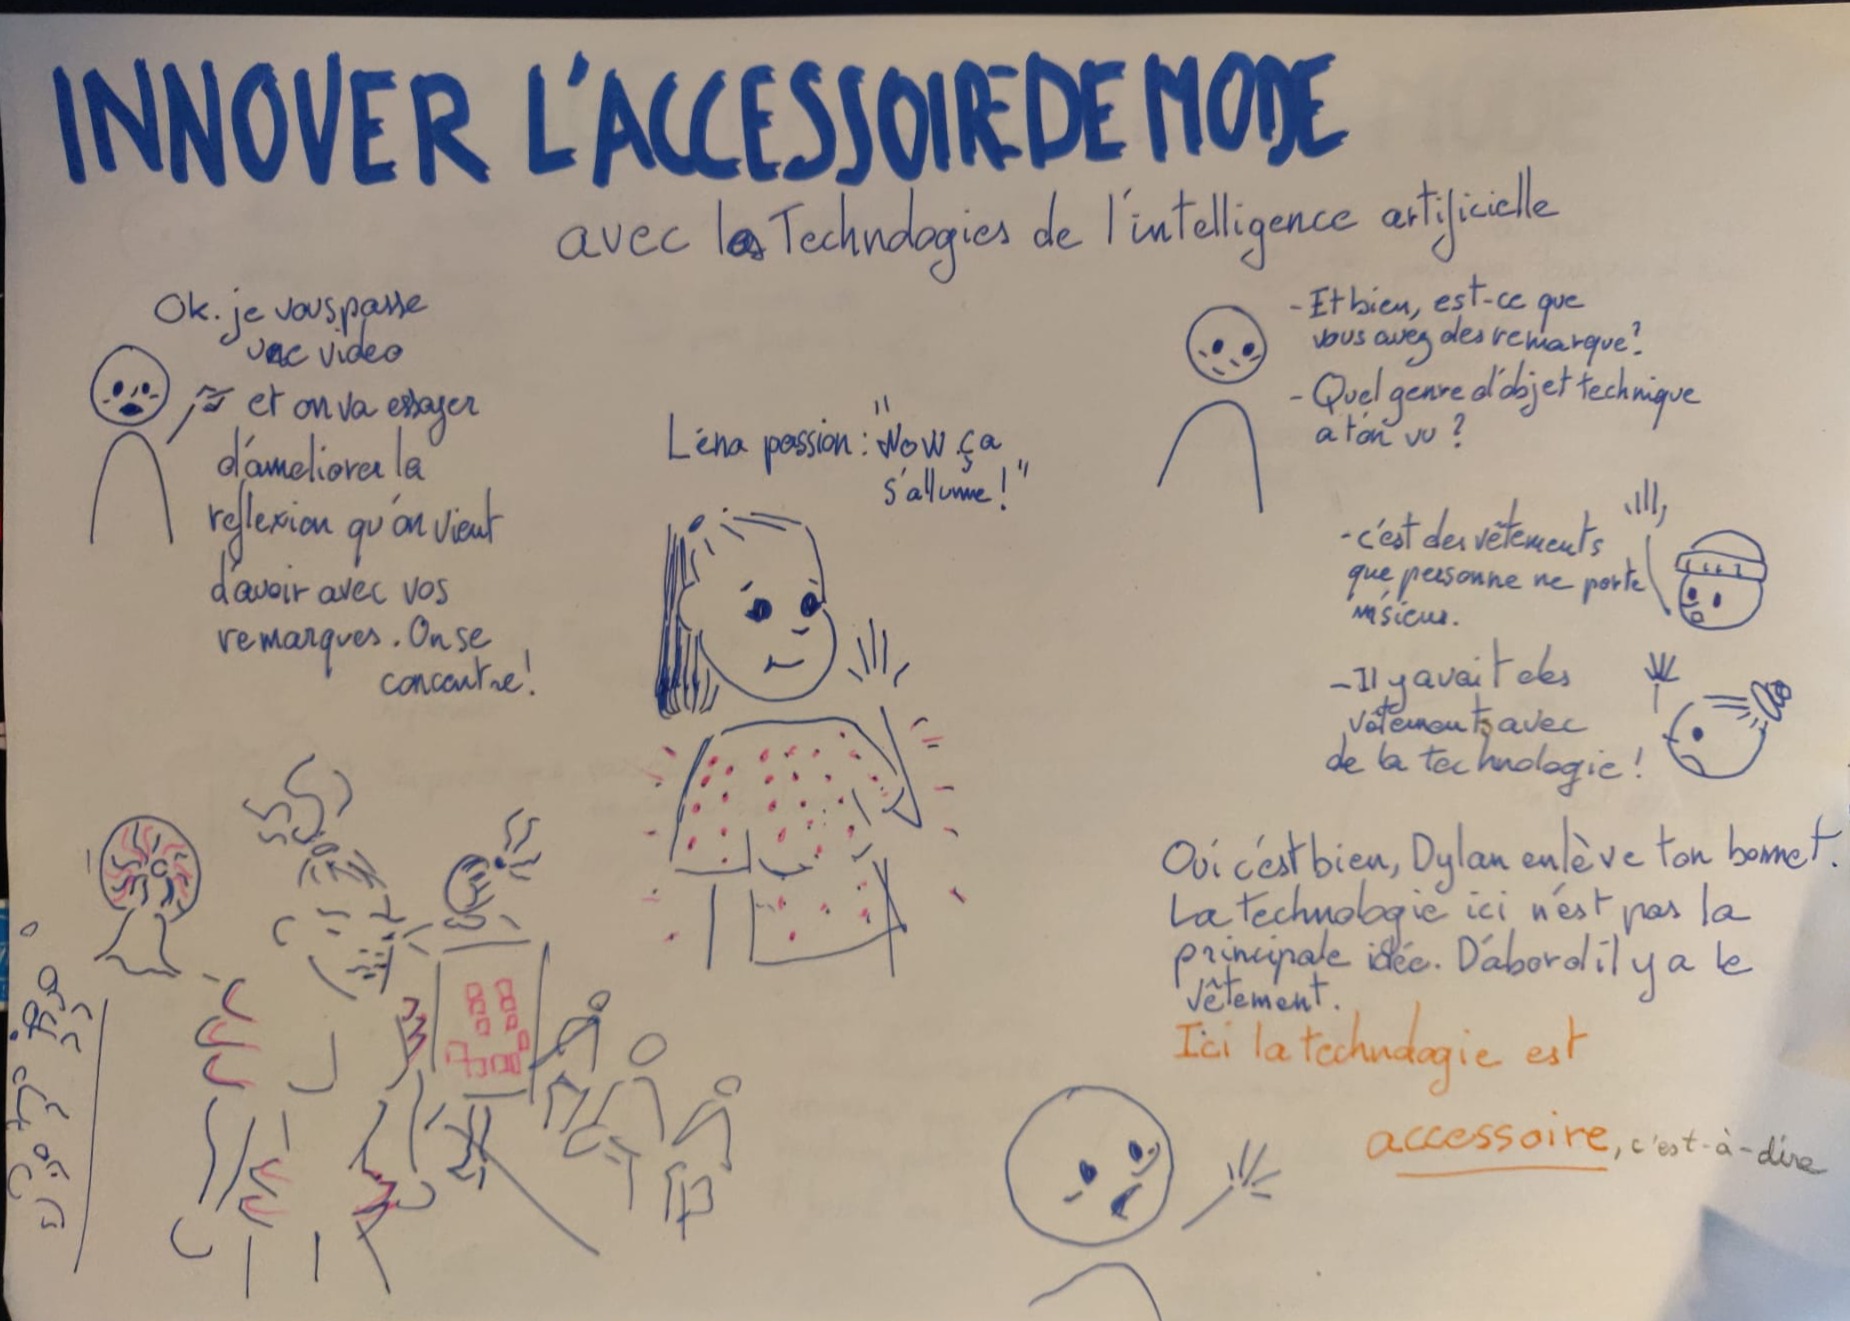 INNOVER L'ACCESSOIRE DE MODE
avec les Technologies de l'intelligence artificielle
Ok. je vous passe
une video
et on va essayer
d'ameliorer la
reflexion qu'on vient
d'avoir avec vos
remarques. On se
concentre!
Léna passion: "Wow ça
s'allume!"
- Et bien, est-ce que
vous avez des remarque?
- Quel genre d'objet technique
a t'on vu ?
- c'est des vêtements
que personne ne porte
m'sieur.
- Il y avait des
vêtements avec
de la technologie !
Oui c'est bien, Dylan enlève ton bonnet.
La technologie ici n'est pas la
principale idée. D'abord il y a le
vêtement.
Ici la technologie est
accessoire, c'est-à-dire